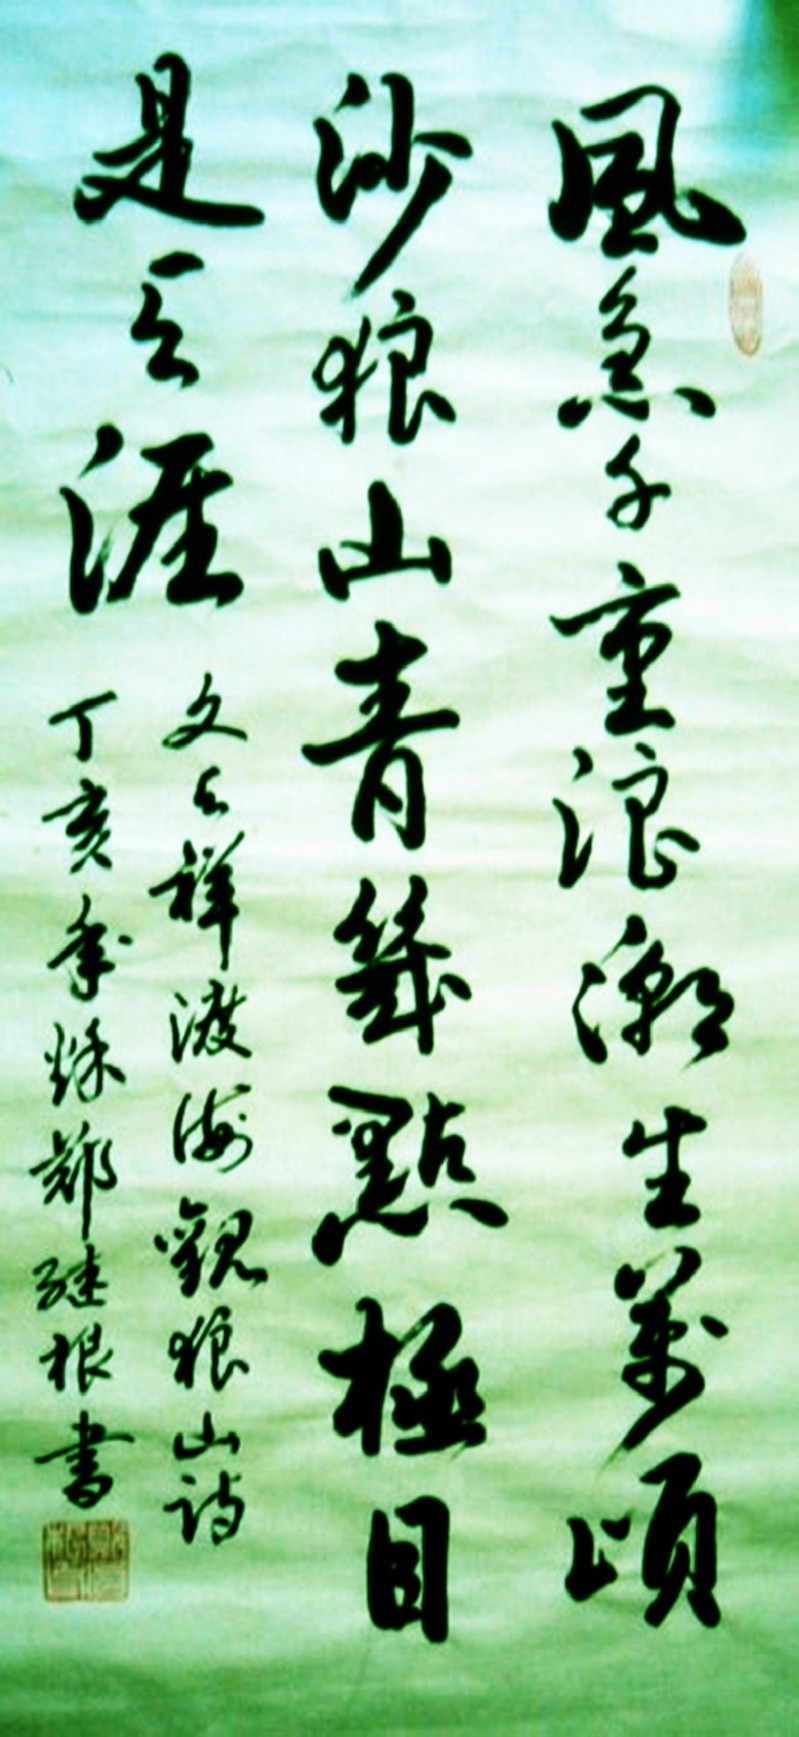 風急千重浪潮生萬頃
沙狼山青幾點極目
是天涯
文天祥渡海觀狼山詩
丁亥年秋鄭継根書